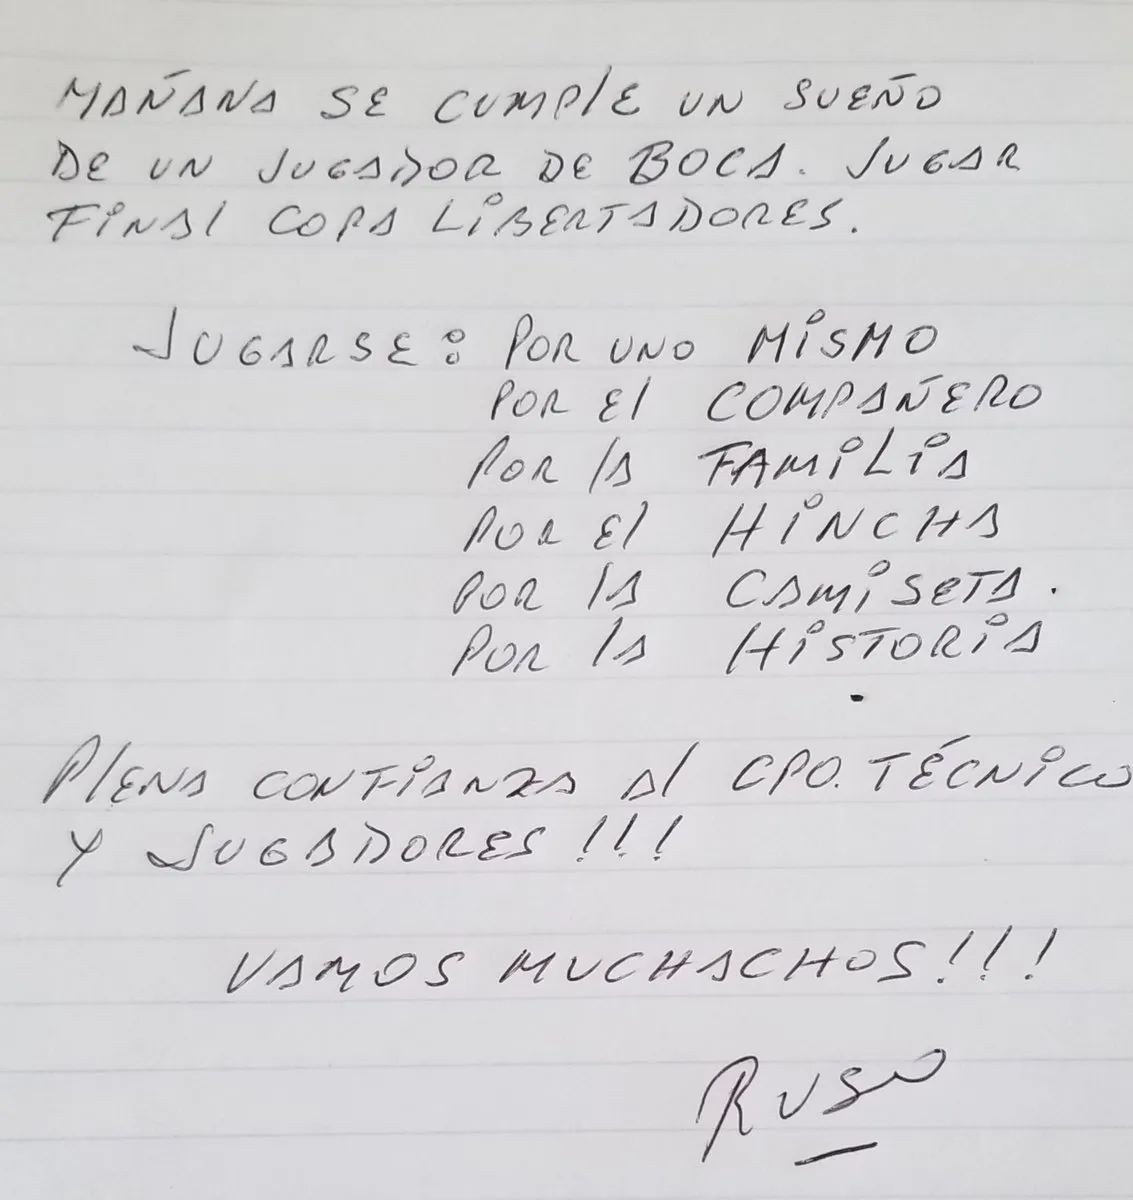 MAÑANA SE CUMPlE UN SUEÑO
DE UN JUGADOR DE BOCA. JUGAR
FiNAl COPA LiBERTADORES.
JUGARSE: POR UNO MiSMO
POR El COMPAÑERO
POR lA FAMiLiA
POR El HiNCHA
POR lA CAMiSETA.
POR lA HiSTORiA
PlENA CONFiANZA Al CPO. TÉCNiCO
Y JUGADORES!!!
VAMOS MUCHACHOS!!!
RUSO